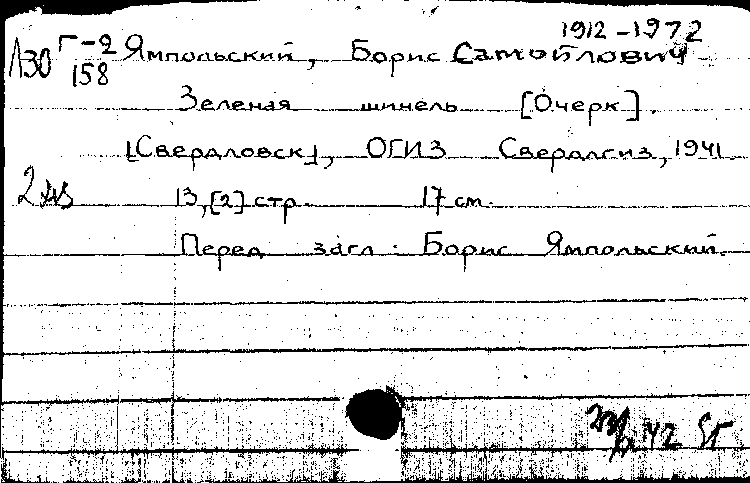 1912-1972
Л30 Г-2 Ямпольский, Борис Самойлович
158
Зеленая шинель [Очерк].
[Свердловск], ОГИЗ Свердлгиз, 1941
2 экз 13,[2] стр. 17 см.
Перед загл.: Борис Ямпольский.
42